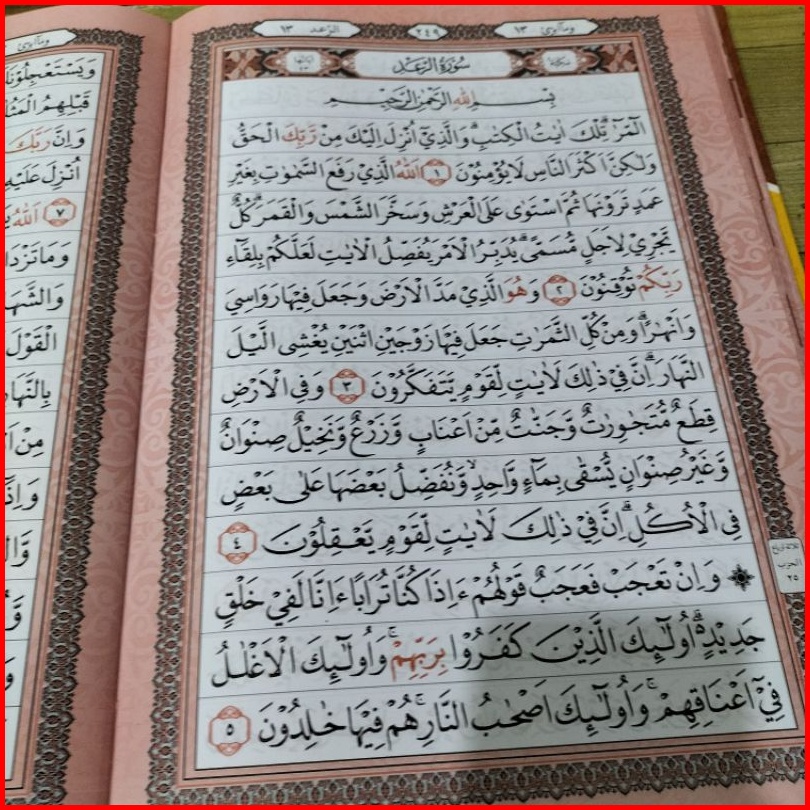 وماأبرئ ١٣
٢٤٩
الرّعد ١٣
سُوْرَةُ الرَّعْدِ
بِسْمِ اللّٰهِ الرَّحْمٰنِ الرَّحِيْمِ
الۤمّۤرٰۗ تِلْكَ اٰيٰتُ الْكِتٰبِۗ وَالَّذِيْٓ اُنْزِلَ اِلَيْكَ مِنْ رَّبِّكَ الْحَقُّ
وَلٰكِنَّ اَكْثَرَ النَّاسِ لَا يُؤْمِنُوْنَ ١ اَللّٰهُ الَّذِيْ رَفَعَ السَّمٰوٰتِ بِغَيْرِ
عَمَدٍ تَرَوْنَهَا ثُمَّ اسْتَوٰى عَلَى الْعَرْشِ وَسَخَّرَ الشَّمْسَ وَالْقَمَرَۗ كُلٌّ
يَّجْرِيْ لِاَجَلٍ مُّسَمًّىۗ يُدَبِّرُ الْاَمْرَ يُفَصِّلُ الْاٰيٰتِ لَعَلَّكُمْ بِلِقَاۤءِ
رَبِّكُمْ تُوْقِنُوْنَ ٢ وَهُوَ الَّذِيْ مَدَّ الْاَرْضَ وَجَعَلَ فِيْهَا رَوَاسِيَ
وَاَنْهٰرًاۗ وَمِنْ كُلِّ الثَّمَرٰتِ جَعَلَ فِيْهَا زَوْجَيْنِ اثْنَيْنِ يُغْشِى الَّيْلَ
النَّهَارَۗ اِنَّ فِيْ ذٰلِكَ لَاٰيٰتٍ لِّقَوْمٍ يَّتَفَكَّرُوْنَ ٣ وَفِى الْاَرْضِ
قِطَعٌ مُّتَجٰوِرٰتٌ وَّجَنّٰتٌ مِّنْ اَعْنَابٍ وَّزَرْعٌ وَّنَخِيْلٌ صِنْوَانٌ
وَّغَيْرُ صِنْوَانٍ يُّسْقٰى بِمَاۤءٍ وَّاحِدٍۙ وَّنُفَضِّلُ بَعْضَهَا عَلٰى بَعْضٍ
فِى الْاُكُلِۗ اِنَّ فِيْ ذٰلِكَ لَاٰيٰتٍ لِّقَوْمٍ يَّعْقِلُوْنَ ٤
وَاِنْ تَعْجَبْ فَعَجَبٌ قَوْلُهُمْ ءَاِذَا كُنَّا تُرَابًا ءَاِنَّا لَفِيْ خَلْقٍ
جَدِيْدٍۗ اُولٰۤىِٕكَ الَّذِيْنَ كَفَرُوْا بِرَبِّهِمْۚ وَاُولٰۤىِٕكَ الْاَغْلٰلُ
فِيْٓ اَعْنَاقِهِمْۚ وَاُولٰۤىِٕكَ اَصْحٰبُ النَّارِۚ هُمْ فِيْهَا خٰلِدُوْنَ ٥
الحزب
٢٥
وَيَسْتَعْجِلُوْنَ
قَبْلِهِمُ الْمَثُ
وَاِنَّ رَبَّكَ
اُنْزِلَ عَلَيْهِ
٧ اَللّٰهُ
وَمَا تَزْدَا
وَالشَّهَا
الْقَوْلَ
بِالنَّهَارِ